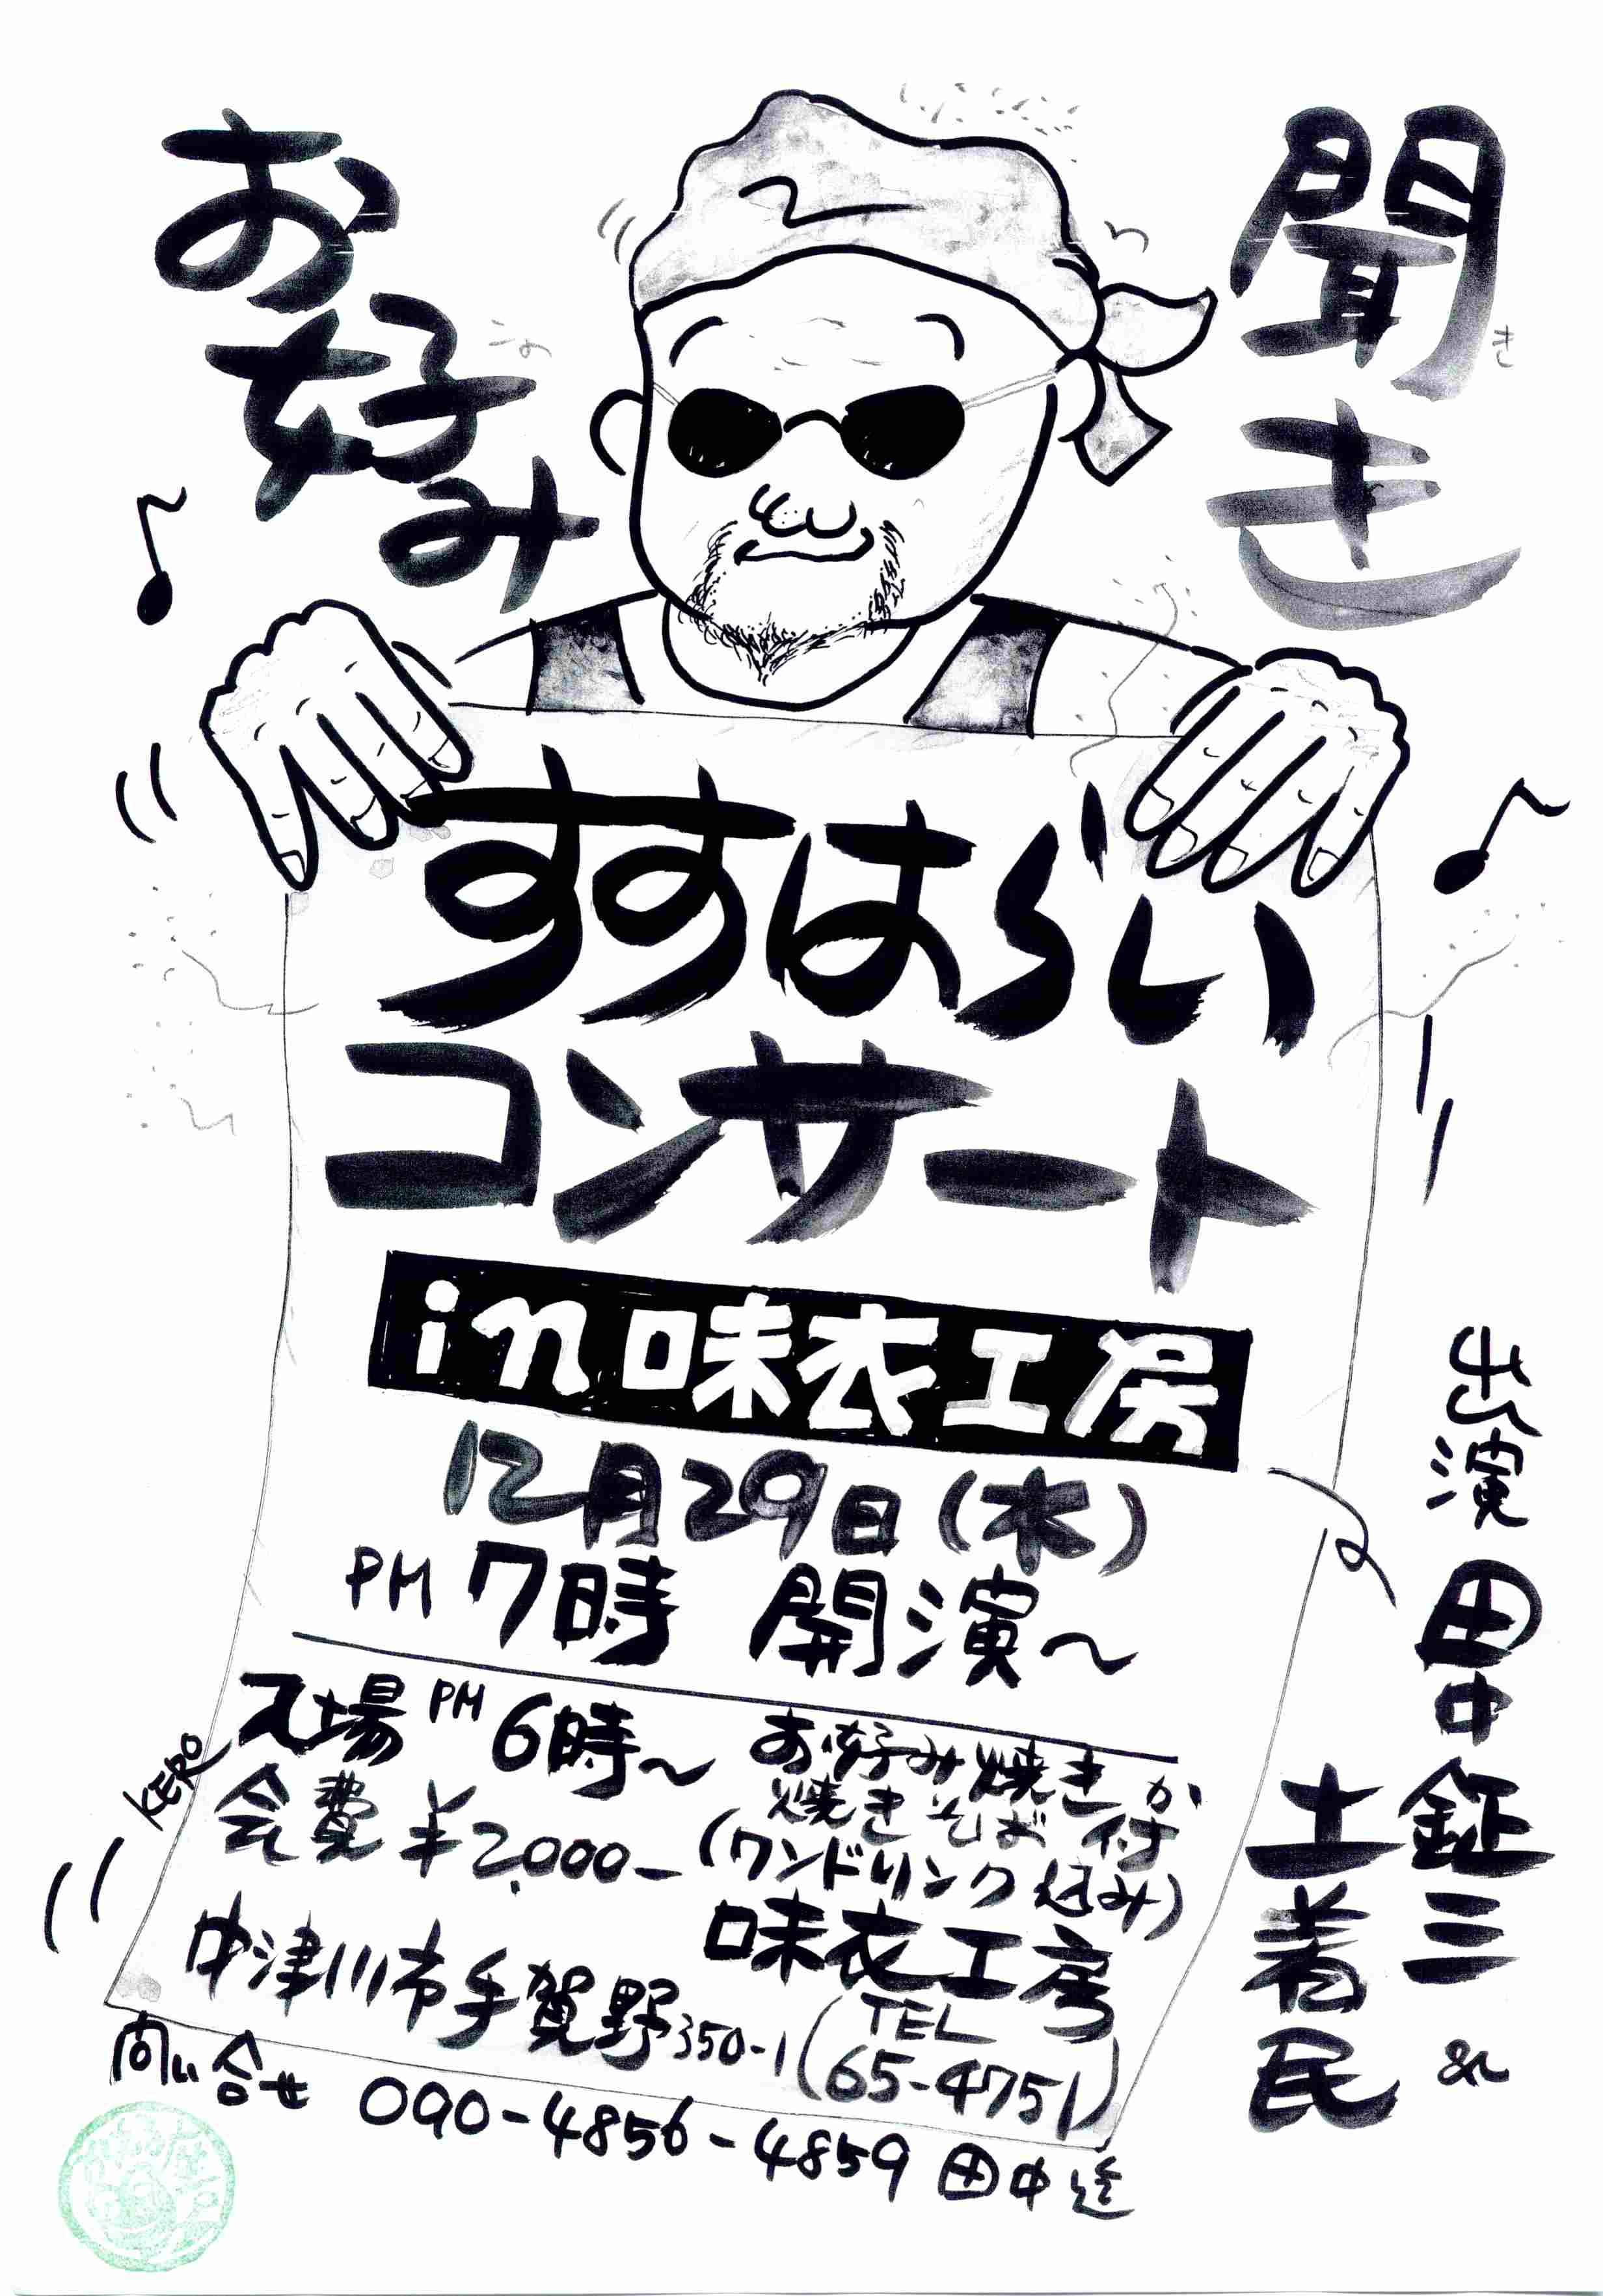 聞き
お好み
き
この
すすはらい
コンサート
in味衣工房
12月29日(水)
PM 7時 開演〜
入場 PM 6時〜
お好み焼きか
焼きそば付
会費 ¥2,000-
(ワンドリンク込み)
味衣工房
中津川市手賀野350-1
(TEL
65-4751)
問い合せ 090-4856-4859 田中迄
KERO
出演 田中鉦三
&
土着民